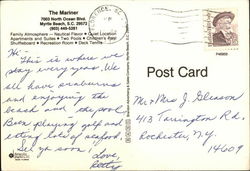 The Mariner
7003 North Ocean Blvd.
Myrtle Beach, S.C. 29572
(803) 449-5281
Family Atmosphere — Nautical Flavor • Quiet Location
Apartments and Suites • Two Pools • Children's Play
Shuffleboard • Recreation Room • Deck Tennis
Hi –
This is where we
stay every year. We
all have oranburns
and enjoying the
beach and the pool.
Been playing golf and
eating lots of seafood.
See ya soon!
Love,
Betty
Post Card
Mr & Mrs J. Gleason
413 Torrington Rd.
Rochester, N.Y.
14609